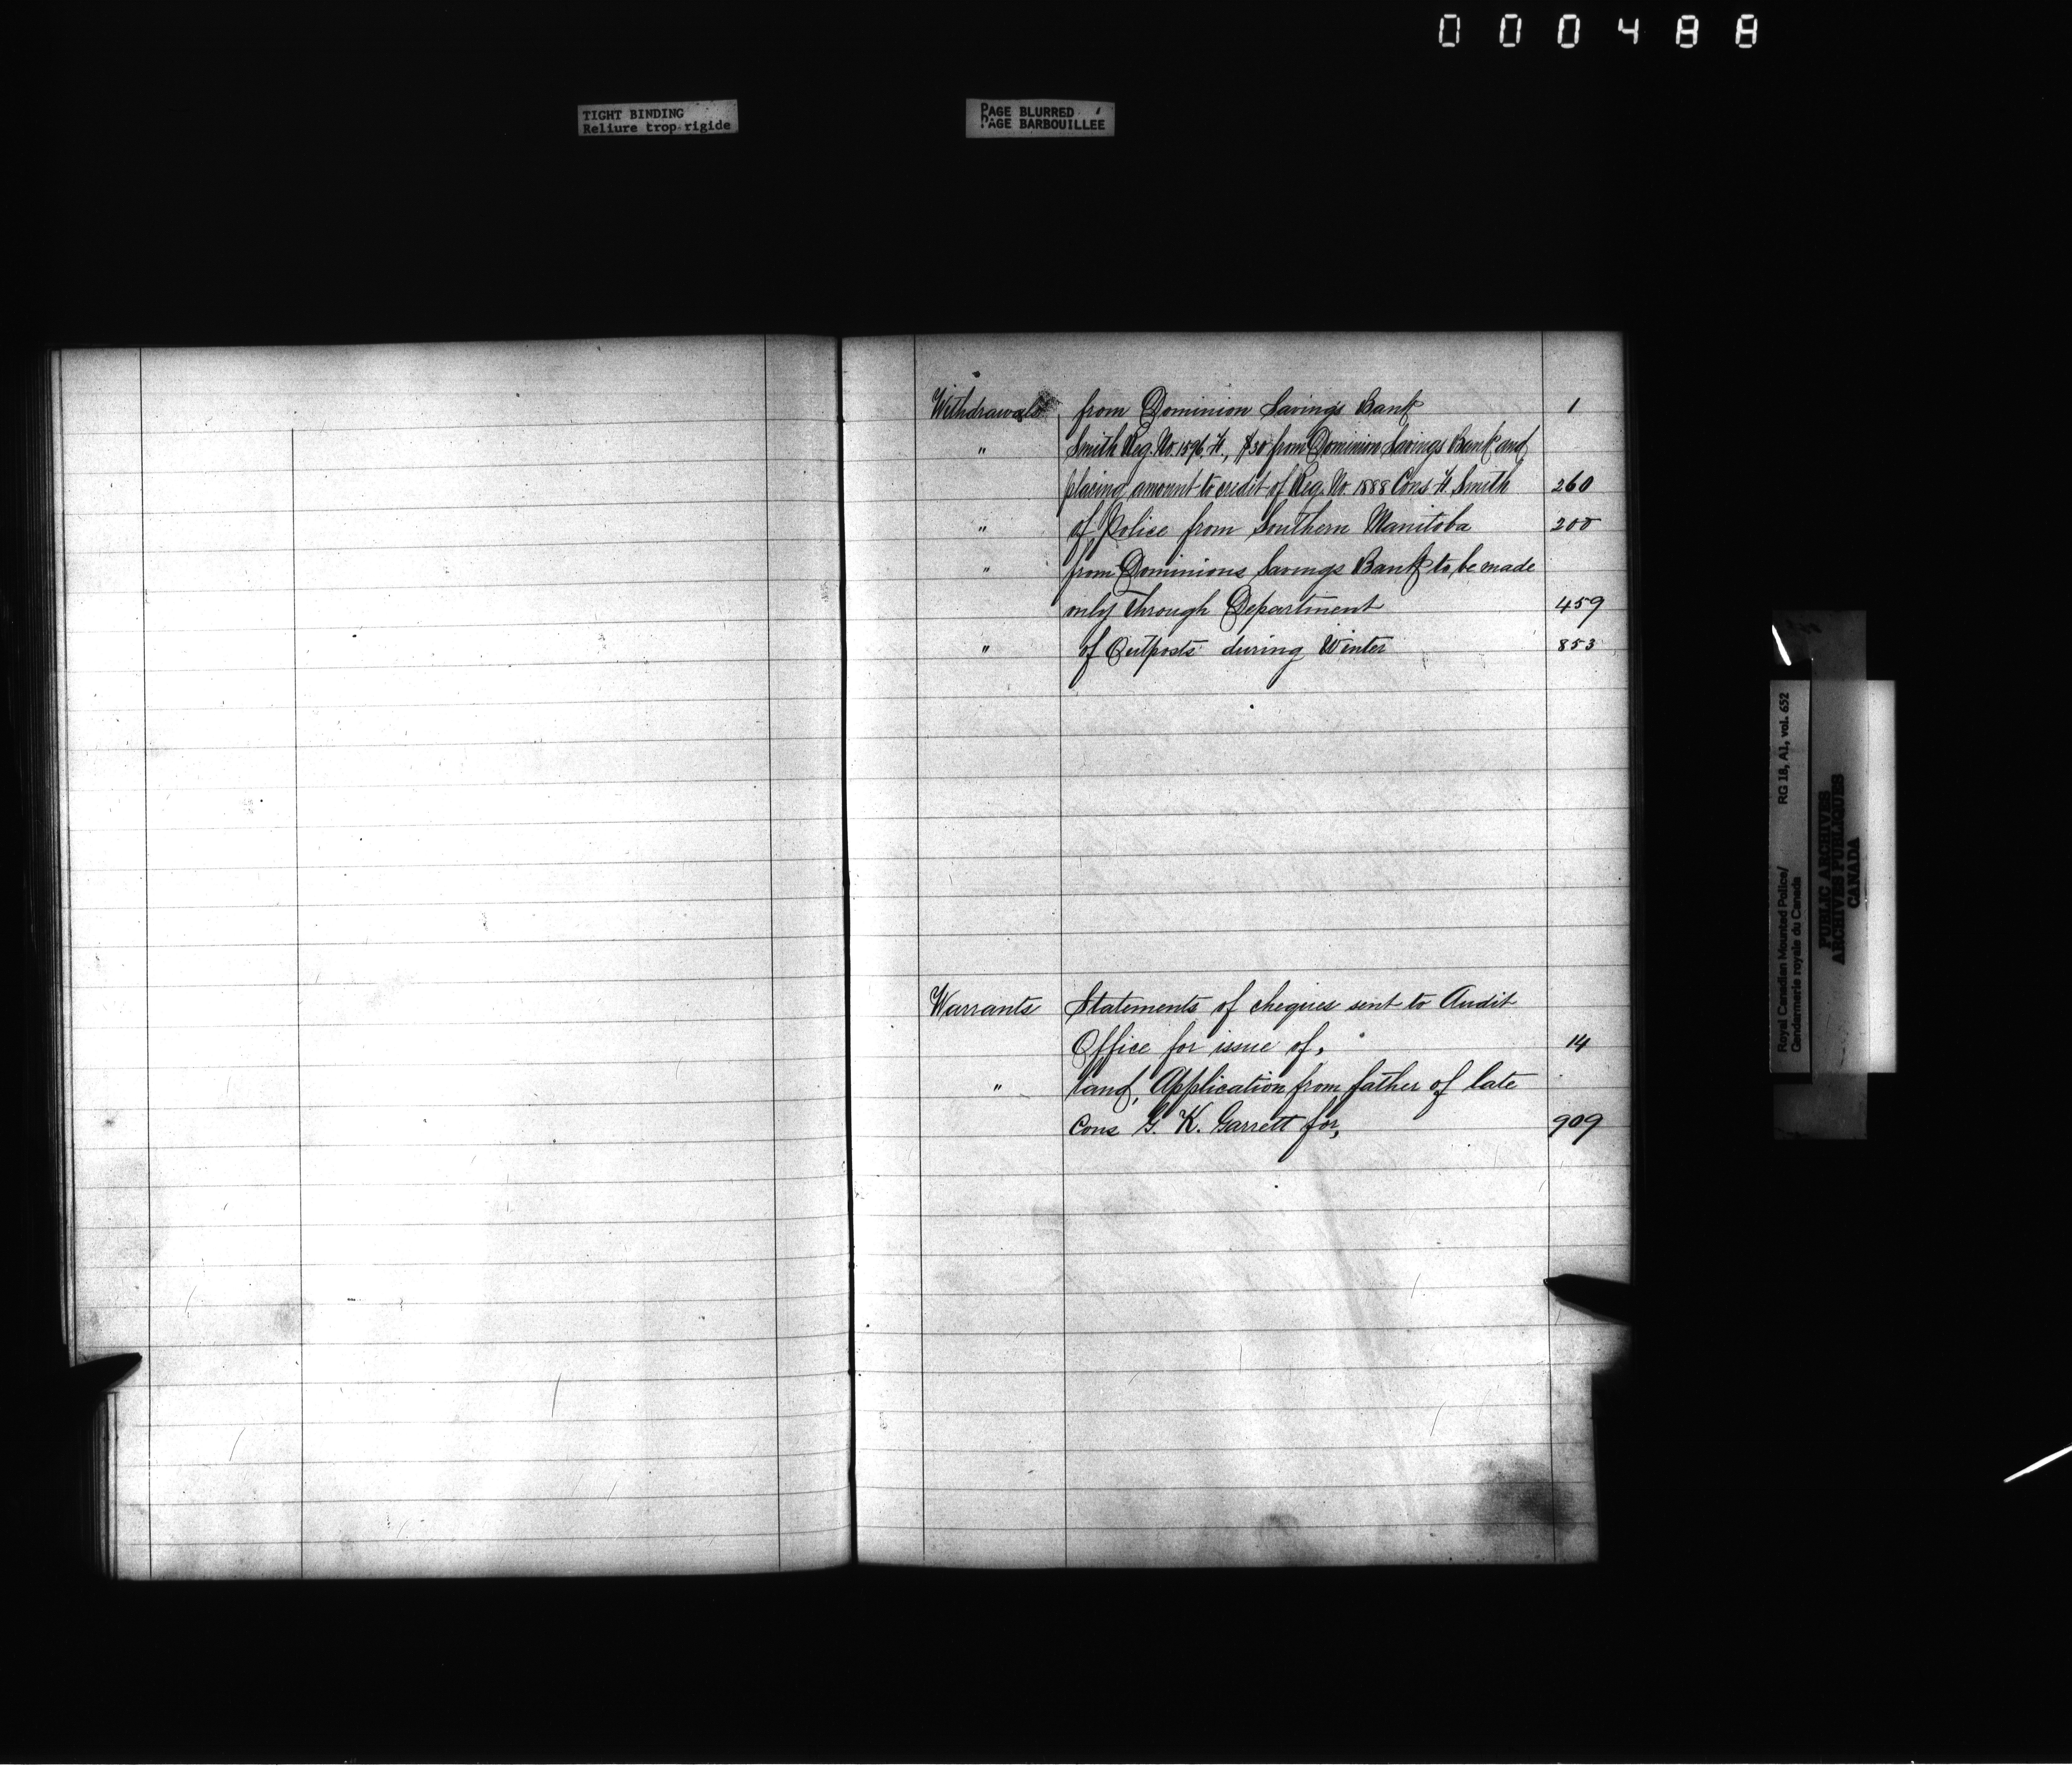 000488
TIGHT BINDING
Reliure trop rigide
PAGE BLURRED
PAGE BARBOUILLEE
Withdrawals from Dominion Savings Bank 1
" Smith Reg. No. 1596, H., $30 from Dominion Savings Bank and
placing amount to credit of Reg. No. 1888 Cons H. Smith 260
" of Police from Southern Manitoba 200
" from Dominions Savings Bank to be made
only through Department 459
" of Outposts during Winter 853
Warrants Statements of cheques sent to Audit
Office for issue of, 14
" land, Application from father of late
Cons G. K. Garrett for, 909
Royal Canadian Mounted Police/ RG 18, A1, vol. 652
Gendarmerie royale du Canada
PUBLIC ARCHIVES
ARCHIVES PUBLIQUES
CANADA